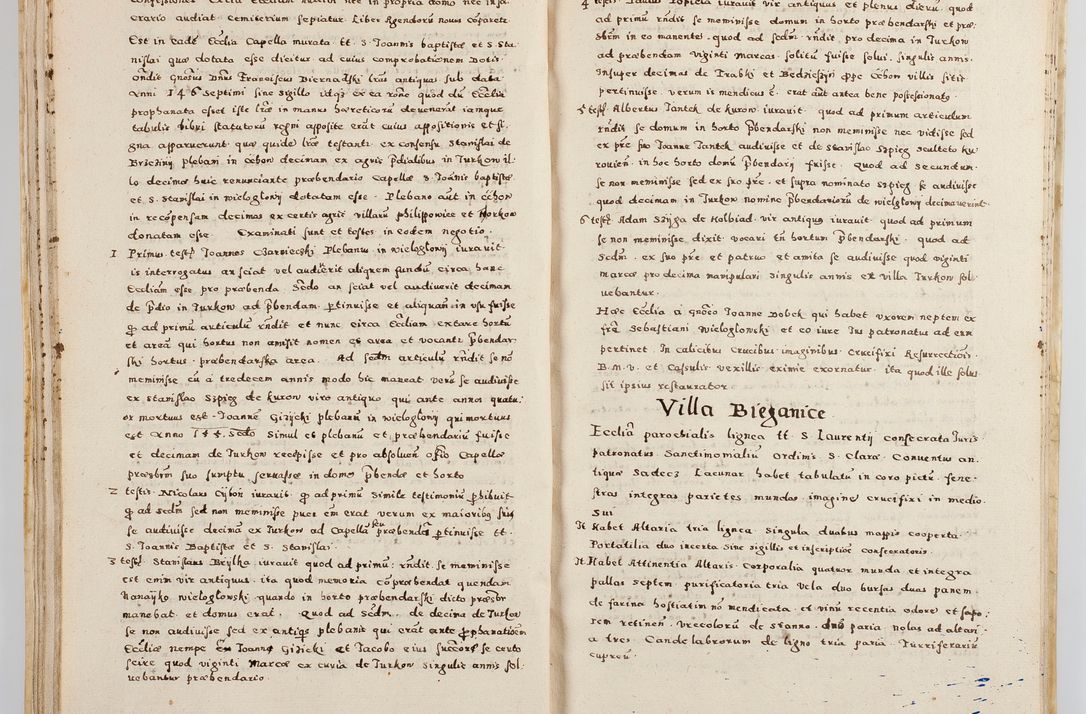 crario audiat cemiterium sepiatur. Liber Agendorũ novus cõparetr
Est in eadẽ Ecclia Capella murata tt. S Joannis baptistæ et S. Sta
nislai quæ dotata esse dicitur ad cuius comprobationem Dotis
ondit gnõsus Dnus Franciscus Biernadski lras antiquas sub data
Anni 146 septimi sine sigillo idqз ex ea rõne quod dũ Ecclia
prophanata esset iste lræ in manus hæreticorũ devenerãt iamque
tabulis libri statutorũ regni apposite erãt cuius appositionis et si,
gna apparuerunt quæ quidẽ lræ testantr ex consensu Stanislai de
Brzeziny plebani in Cchow decimam ex agris Prædialibus in Turkow il
lo decimas huic renunciante præbendario Capellæ S Joãnis baptistæ
et S. Stanislai in wielogłowy dotatam esse. Plebano aũt in Cchow
in recõpensam decimas ex certis agris villarũ philippowice et Morkow
donatam esse. Examinati sunt et testes in eodem negotio.
1 Primus testis Joannes Czarniecski Plebanus in wielogłowy iuravit
is interrogatus an sciat vel audierit aliquem fundũ circa hanc
Eccliam esse pro præbenda. Scdo an sciat vel audiuerit decimam
de Pdio in Turkow ad Pbendam ptinuisse et aliquan in usu fuisse
q ad primũ articulũ rndit et nunc circa Eccliam extare hortũ
et areã qui hortus non amisit nomen et area et vocantr Pbendar
ski hortus. præbendarska area. Ad scdm articulũ rndit se nõ
meminisse cũ a tredecem annis modo hic maneat verũ se audiuisse
ex stanislao Szpieg de kurow viro antiquo qui ante annos quatu:
or mortuus est. Joannẽ Giżycki plebanũ in wielogłowy qui mortuus
est Anno 144. Scdo Simul et plebanũ et præbendariũ fuisse
et decimam de Turkow recepisse et pro absoluen officio Capellæ
præsbrm suo sumptu servasse in domo Pbendæ et horto
2 testis. Nicolaus Cyboń iuravit q ad primũ simile testimoniũ phibuit
q ad scdm sed non meminisse puer em erat verum ex maioribus suis
se audiuisse decimã ex Turkow ad Capellã seu præbendã ptinuisse tt
S. Joannis Baptistæ et S. Stanislai.
3 testis Stanislaus Brylka iurauit quod ad primũ rndit. se meminisse
est enim vir antiquus. ita quod memoria cõprobendat quendam
Nanayko wieloglowski quando in horto præbendarski dicto præsbr
manebat et domus erat. Quod ad Scdm. de decima de Turkow
se non audiuisse sed ex antiqs plebanis qui erãt ante pphanationẽ
Eccliæ nempe ex Joanne Gizicki et Jacobo eius succore se certo
scire quod viginti Marcæ ex curia de Turkow singulis annis sol
uebantur præbendario.
4 testis Paulus Topiela iurauit vir antiquus et plenus dierũ. quod
ad primũ rndit se meminisse domum in horto præbendarski et præ
sbrm in eo manentẽ. quod ad scdm rndit. pro decima in Turkow
ad præbendam viginti Marcas solitũ fuisse solui. singulis annis.
Insuper decimas de Trabki et Bedzieszyn ppe Cchow villis sitis
pertinuisse. verum is mendicus ẽ. erat aũt antea bene posessionatus
5 testis Albertus Jantek de kurow iurauit. quod ad primum articulum
rndit se domum in horto Pbendarski non meminisse nec vidisse sed
ex pre suo Joanne Jantek audiuisse et de stanislao Szpieg sculteto ku
rouien. in hoc horto domũ Pbendarij fuisse. Quod ad Secundum
se non meminisse sed ex suo pre. et supra nominato szpieg se audiuisse
quod decimam in Turkow nomine Pbendariorũ de wielgłowy decimauerint.
6 testis Adam Szyga de Kolbiad vir antiquus iurauit quod ad primum
se non meminisse dixit. vocari tñ hortum Pbendarski. quod ad
Scdm. ex suo pre et patruo et amita se audiuisse quod viginti
marcæ pro decima manipulari singulis annis ex villa Turkow sol
uebantur.
Hæc Ecclia a gnõso Joanne Bobek qui habet uxorem neptem ex
frẽ Sebastiani wielogłowski et eo iure Ius patronatus ad eum
pertinet In calicibus Crucibus imaginibus Crucifixi Resurrectiõis
B.M.V. et Casulis vexillis eximie exornatur. ita quod ille solus
sit ipsius restaurator
Villa Bieganice
Ecclia parochialis lignea tt S Laurentij consecrata Juris
patronatus Sanctimonialiũ Ordinis S. Claræ Conventus an,
tiquæ Sadecz Lacunar habet tabulatũ in coro pictũ fene,
stras integras parietes mundos imaginẽ crucifixi in medio
sui
It Habet Altaria tria lignea singula duabus mappis cooperta
Portatilia duo incerta sine sigillis et inscriptiõe consecratoris
It Habet Attinentia Altaris corporalia quatuor munda et integra
pallas septem purificatoria tria vela duo bursas duas panem
de farina hostiatim nõ mendicata et vinũ recentia odore et sapo:
rem retinen. Vrceolorũ de stanno duo paria nolas ad altari
a tres. Candelabrorum de ligno tria paria Turriferariũ
cupreũ.